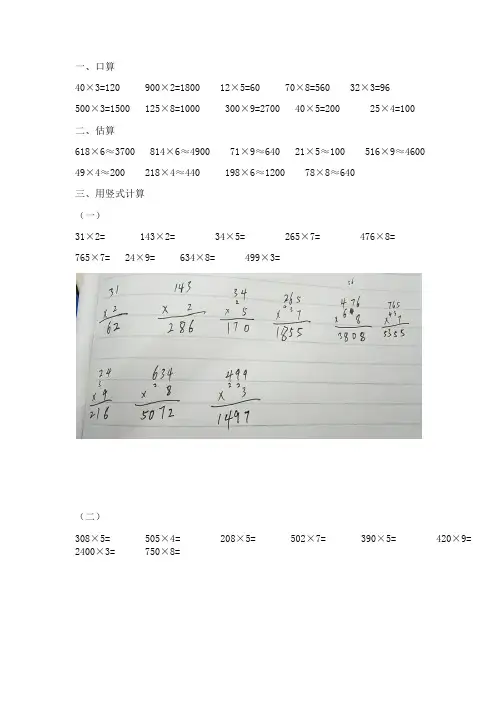 一、口算
40×3=120 900×2=1800 12×5=60 70×8=560 32×3=96
500×3=1500 125×8=1000 300×9=2700 40×5=200 25×4=100
二、估算
618×6≈3700 814×6≈4900 71×9≈640 21×5≈100 516×9≈4600
49×4≈200 218×4≈440 198×6≈1200 78×8≈640
三、用竖式计算
（一）
31×2= 143×2= 34×5= 265×7= 476×8=
765×7= 24×9= 634×8= 499×3=
31 143 34 265 476 765
×2 × 2 × 5 × 7 × 8 × 7
62 286 170 1855 3808 5355
24 634 499
×9 × 8 × 3
216 5072 1497
（二）
308×5= 505×4= 208×5= 502×7= 390×5= 420×9=
2400×3= 750×8=